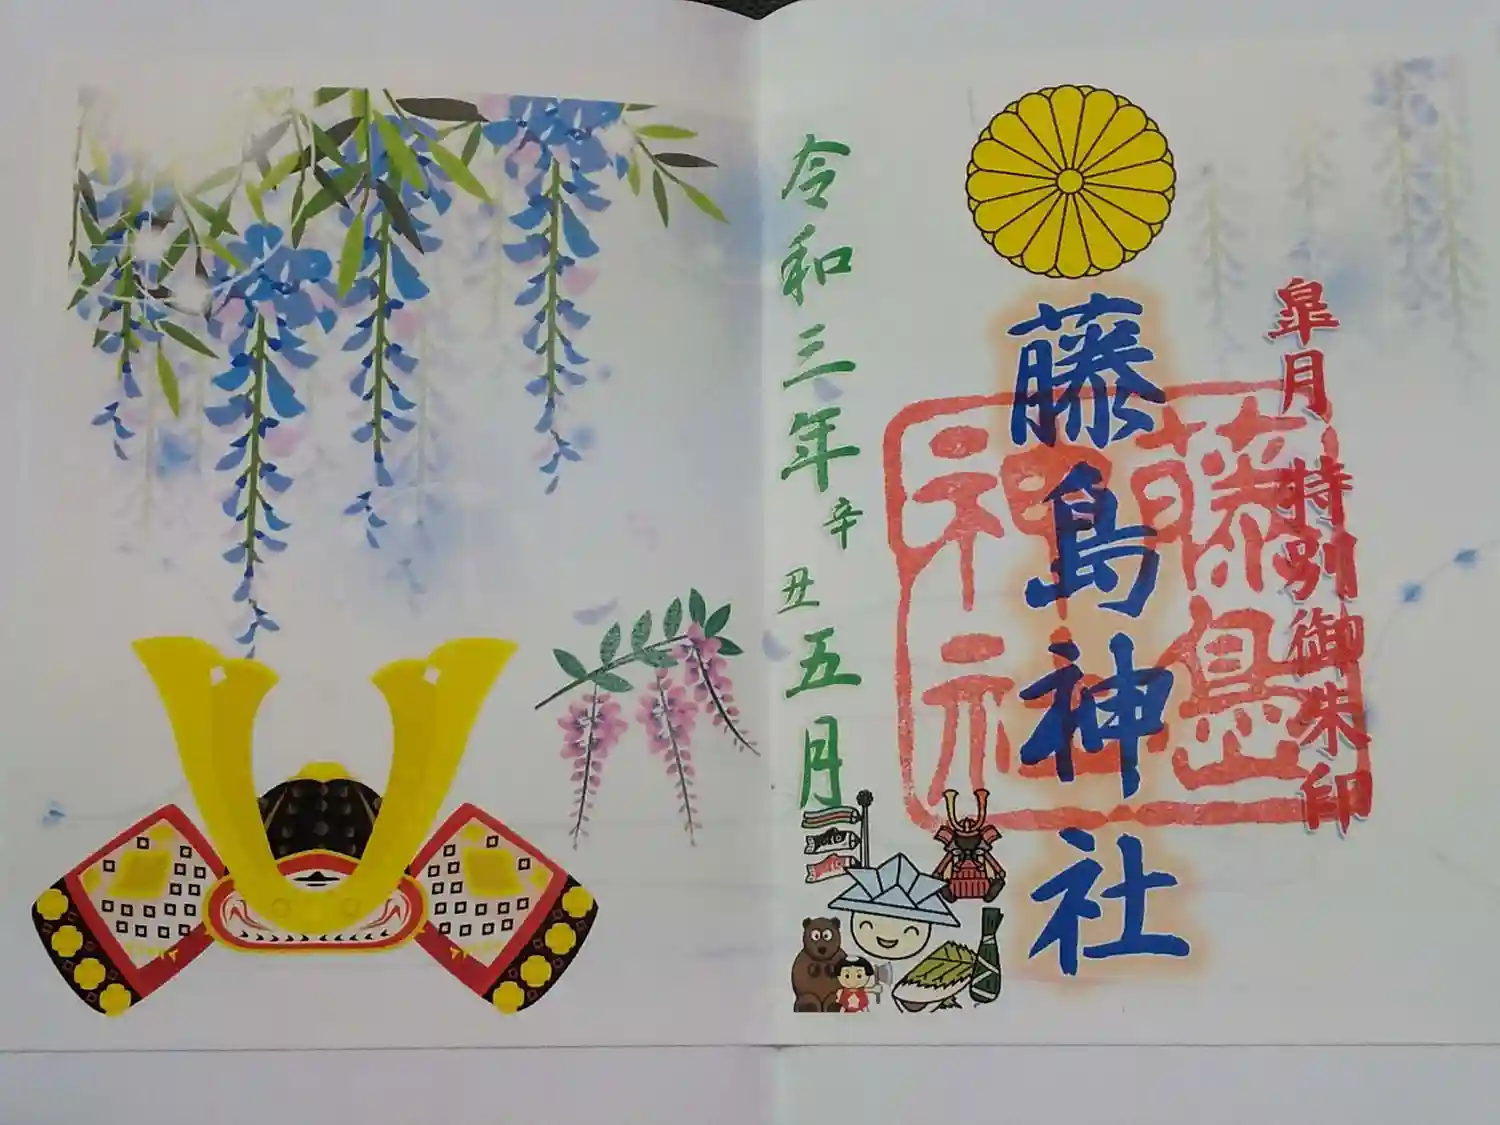 皐月 特別御朱印
藤島神社
藤島
神社
令和三年 辛丑 五月